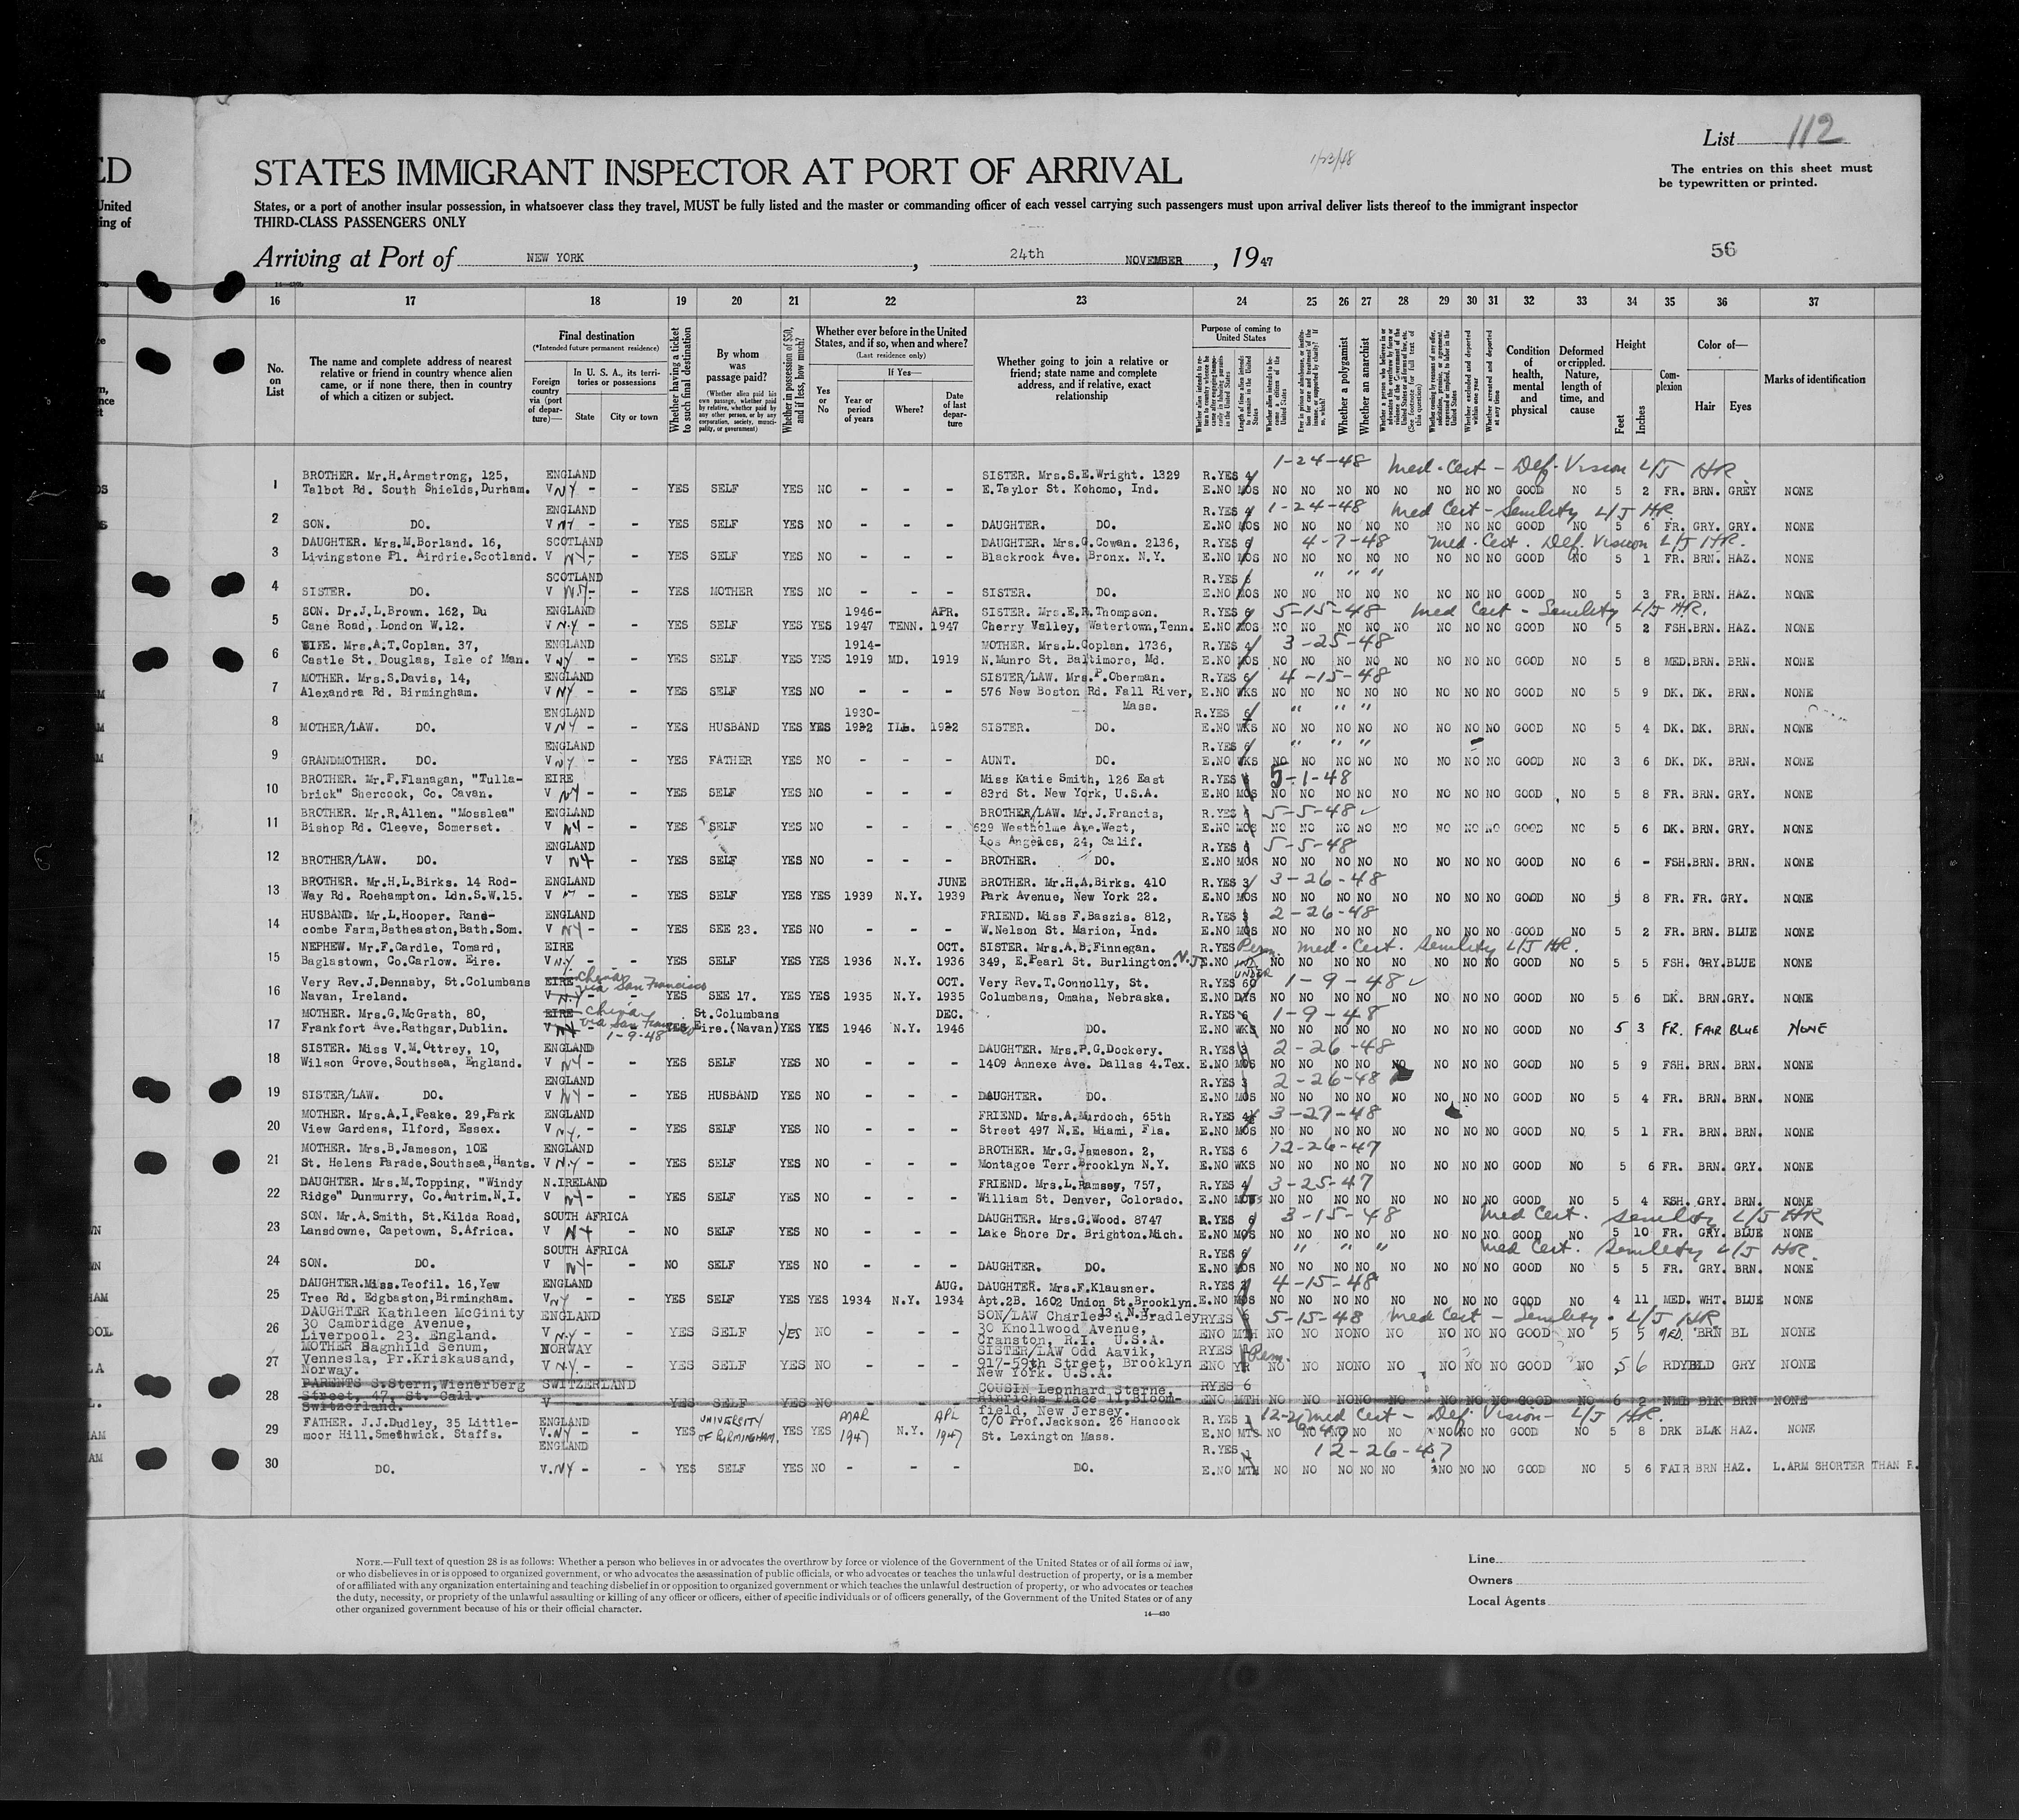 List 112
The entries on this sheet must
be typewritten or printed.
1/23/48
ED
STATES IMMIGRANT INSPECTOR AT PORT OF ARRIVAL
United
ing of
States, or a port of another insular possession, in whatsoever class they travel, MUST be fully listed and the master or commanding officer of each vessel carrying such passengers must upon arrival deliver lists thereof to the immigrant inspector
THIRD-CLASS PASSENGERS ONLY
Arriving at Port of NEW YORK, 24th NOVEMBER, 1947
56
16 17 18 19 20 21 22 23 24 25 26 27 28 29 30 31 32 33 34 35 36 37
No. on List
The name and complete address of nearest
relative or friend in country whence alien
came, or if none there, then in country
of which a citizen or subject.
Final destination
(*Intended future permanent residence)
Foreign country via (port of departure)—
In U. S. A., its territories or possessions
State
City or town
Whether having a ticket to such final destination
By whom was passage paid?
(Whether alien paid his own passage, whether paid by relative, whether paid by any other person, or by any corporation, society, municipality, or government)
Whether in possession of $50, and if less, how much?
Whether ever before in the United
States, and if so, when and where?
(Last residence only)
Yes or No
If Yes—
Year or period of years
Where?
Date of last departure
Whether going to join a relative or
friend; state name and complete
address, and if relative, exact
relationship
Purpose of coming to United States
Whether a polygamist
Whether an anarchist
Condition of health, mental and physical
Deformed or crippled. Nature, length of time, and cause
Height
Feet
Inches
Complexion
Color of—
Hair
Eyes
Marks of identification
1-24-48 Med. Cert - Def. Vision L/J HR
1 BROTHER. Mr.H.Armstrong, 125, ENGLAND SISTER. Mrs.S.E.Wright. 1329 R.YES 4
Talbot Rd. South Shields,Durham. V NY - - YES SELF YES NO - - - E.Taylor St. Kohomo, Ind. E.NO MOS NO NO NO NO NO NO NO NO GOOD NO 5 2 FR. BRN. GREY NONE
ENGLAND R.YES 4 1-24-48 Med Cert - Senility L/J HR.
2 SON. DO. V NY - - YES SELF YES NO - - - DAUGHTER. DO. E.NO MOS NO NO NO NO NO NO NO NO GOOD NO 5 6 FR. GRY. GRY. NONE
3 DAUGHTER. Mrs.M.Borland. 16, SCOTLAND DAUGHTER. Mrs.G.Cowan. 2136, R.YES 6 4-7-48 Med. Cert. Def. Vision L/J HR.
Livingstone Pl. Airdrie.Scotland. V NY- - YES SELF YES NO - - - Blackrock Ave. Bronx. N.Y. E.NO MOS NO NO NO NO NO NO NO NO GOOD NO 5 1 FR. BRN. HAZ. NONE
SCOTLAND R.YES 6 " " "
4 SISTER. DO. V N.Y- - YES MOTHER YES NO - - - SISTER. DO. E.NO MOS NO NO NO NO NO NO NO NO GOOD NO 5 3 FR. BRN. HAZ. NONE
5 SON. Dr.J.L.Brown. 162, Du ENGLAND 1946- APR. SISTER. Mrs.E.R.Thompson. R.YES 6 5-15-48 Med Cert - Senility L/J HR.
Cane Road, London W.12. V N.Y - - YES SELF YES YES 1947 TENN. 1947 Cherry Valley, Watertown,Tenn. E.NO MOS NO NO NO NO NO NO NO NO GOOD NO 5 2 FSH. BRN. HAZ. NONE
6 WIFE. Mrs.A.T.Coplan. 37, ENGLAND 1914- MOTHER. Mrs.L.Coplan. 1736, R.YES 4 3-25-48
Castle St. Douglas, Isle of Man. V NY - - YES SELF YES YES 1919 MD. 1919 N.Munro St. Baltimore, Md. E.NO MOS NO NO NO NO NO NO NO NO GOOD NO 5 8 MED. BRN. BRN. NONE
7 MOTHER. Mrs.S.Davis, 14, ENGLAND SISTER/LAW. Mrs.P.Oberman. R.YES 6 4-15-48
Alexandra Rd. Birmingham. V NY - - YES SELF YES NO - - - 576 New Boston Rd. Fall River, Mass. E.NO WKS NO NO NO NO NO NO NO NO GOOD NO 5 9 DK. DK. BRN. NONE
ENGLAND 1930- R.YES 6 " " "
8 MOTHER/LAW. DO. V NY - - YES HUSBAND YES YES 1932 ILL. 1932 SISTER. DO. E.NO WKS NO NO NO NO NO NO NO NO GOOD NO 5 4 DK. DK. BRN. NONE
ENGLAND R.YES 6 " " "
9 GRANDMOTHER. DO. V NY - - YES FATHER YES NO - - - AUNT. DO. E.NO WKS NO NO NO NO NO NO NO NO GOOD NO 3 6 DK. DK. BRN. NONE
10 BROTHER. Mr.P.Flanagan, "Tulla- EIRE Miss Katie Smith, 126 East R.YES 5-1-48
brick" Shercock, Co. Cavan. V NY - - YES SELF YES NO - - - 83rd St. New York, U.S.A. E.NO MOS NO NO NO NO NO NO NO NO GOOD NO 5 8 FR. BRN. GRY. NONE
11 BROTHER. Mr.R.Allen. "Mosslea" ENGLAND BROTHER/LAW. Mr.J.Francis, R.YES 5-5-48
Bishop Rd. Cleeve, Somerset. V NY - - YES SELF YES NO - - - 629 Westholme Ave.West, Los Angelcs, 24, Calif. E.NO MOS NO NO NO NO NO NO NO NO GOOD NO 5 6 DK. BRN. GRY. NONE
ENGLAND R.YES 5-5-48
12 BROTHER/LAW. DO. V NY - YES SELF YES NO - - - BROTHER. DO. E.NO MOS NO NO NO NO NO NO NO NO GOOD NO 6 - FSH. BRN. BRN. NONE
13 BROTHER. Mr.H.L.Birks. 14 Rod- ENGLAND JUNE BROTHER. Mr.H.A.Birks. 410 R.YES 3 3-26-48
Way Rd. Roehampton. Ldn.S.W.15. V - - YES SELF YES YES 1939 N.Y. 1939 Park Avenue, New York 22. E.NO MOS NO NO NO NO NO NO NO NO GOOD NO 5 8 FR. FR. GRY. NONE
14 HUSBAND. Mr.L.Hooper. Rand- ENGLAND FRIEND. Miss F.Baszis. 812, R.YES 3 2-26-48
combe Farm,Batheaston,Bath.Som. V NY - - YES SEE 23. YES NO - - - W.Nelson St. Marion, Ind. E.NO MOS NO NO NO NO NO NO NO NO GOOD NO 5 2 FR. BRN. BLUE NONE
15 NEPHEW. Mr.F.Cardle, Tomard, EIRE OCT. SISTER. Mrs.A.B.Finnegan. R.YES Perm. Med. Cert. Senility L/J HR.
Baglastown, Co.Carlow. Eire. V N.Y. - YES SELF YES YES 1936 N.Y. 1936 349, E.Pearl St. Burlington. N.J. E.NO NO NO NO NO NO NO NO NO GOOD NO 5 5 FSH. GRY. BLUE NONE
16 Very Rev.J.Dennaby, St.Columbans EIRE China via San Francisco OCT. Very Rev.T.Connolly, St. UNDER R.YES 60 1-9-48
Navan, Ireland. V N.Y - - YES SEE 17. YES YES 1935 N.Y. 1935 Columbans, Omaha, Nebraska. E.NO DYS NO NO NO NO NO NO NO NO GOOD NO 5 6 DK. BRN. GRY. NONE
17 MOTHER. Mrs.G.McGrath, 80, EIRE China via San Francisco St.Columbans DEC. R.YES 6 1-9-48
Frankfort Ave.Rathgar,Dublin. V NY 1-9-48 YES Eire.(Navan) YES YES 1946 N.Y. 1946 DO. E.NO WKS NO NO NO NO NO NO NO NO GOOD NO 5 3 FR. FAIR BLUE NONE
18 SISTER. Miss V.M.Ottrey, 10, ENGLAND DAUGHTER. Mrs.P.G.Dockery. R.YES 3 2-26-48
Wilson Grove,Southsea, England. V NY - - YES SELF YES NO - - - 1409 Annexe Ave. Dallas 4.Tex. E.NO MOS NO NO NO NO NO NO NO NO GOOD NO 5 9 FSH. BRN. BRN. NONE
ENGLAND R.YES 3 2-26-48
19 SISTER/LAW. DO. V NY - - YES HUSBAND YES NO - - - DAUGHTER. DO. E.NO MOS NO NO NO NO NO NO NO NO GOOD NO 5 4 FR. BRN. BRN. NONE
20 MOTHER. Mrs.A.I.Peake. 29,Park ENGLAND FRIEND. Mrs.A.Murdoch, 65th R.YES 4 3-27-48
View Gardens, Ilford, Essex. V NY. - - YES SELF YES NO - - - Street 497 N.E. Miami, Fla. E.NO MOS NO NO NO NO NO NO NO NO GOOD NO 5 1 FR. BRN. BRN. NONE
21 MOTHER. Mrs.B.Jameson, 10E ENGLAND BROTHER. Mr.G.Jameson. 2, R.YES 6 12-26-47
St. Helens Parade,Southsea,Hants. V N.Y - - YES SELF YES NO - - - Montagoe Terr.Brooklyn N.Y. E.NO WKS NO NO NO NO NO NO NO NO GOOD NO 5 6 FR. BRN. GRY. NONE
22 DAUGHTER. Mrs.M.Topping, "Windy N.IRELAND FRIEND. Mrs.L.Ramsey, 757, R.YES 4 3-25-47
Ridge" Dunmurry, Co.Antrim.N.I. V NY - - YES SELF YES NO - - - William St. Denver, Colorado. E.NO MOS NO NO NO NO NO NO NO NO GOOD NO 5 4 FSH. GRY. BRN. NONE
23 SON. Mr.A.Smith, St.Kilda Road, SOUTH AFRICA DAUGHTER. Mrs.G.Wood. 8747 R.YES 6 3-15-48 Med Cert. Senility L/J HR
Lansdowne, Capetown, S.Africa. V NY - NO SELF YES NO - - - Lake Shore Dr. Brighton.Mich. E.NO MOS NO NO NO NO NO NO NO NO GOOD NO 5 10 FR. GRY. BLUE NONE
SOUTH AFRICA R.YES 6 " " " Med Cert. Senility L/J HR.
24 SON. DO. V NY- - NO SELF YES NO - - - DAUGHTER. DO. E.NO MOS NO NO NO NO NO NO NO NO GOOD NO 5 5 FR. GRY. BRN. NONE
25 DAUGHTER.Miss.Teofil. 16,Yew ENGLAND AUG. DAUGHTER. Mrs.F.Klausner. R.YES 4-15-48
Tree Rd. Edgbaston,Birmingham. V NY - - YES SELF YES YES 1934 N.Y. 1934 Apt.2B. 1602 Union St.Brooklyn. 13. N.Y. E.NO MOS NO NO NO NO NO NO NO NO GOOD NO 4 11 MED. WHT. BLUE NONE
26 DAUGHTER Kathleen McGinity ENGLAND SON/LAW Charles A. Bradley RYES 6 5-15-48 Med Cert - Senility. L/J HR
30 Cambridge Avenue, 30 Knollwood Avenue,
Liverpool. 23. England. V N.Y - - YES SELF YES NO - - - Cranston, R.I. U.S.A. ENO MTH NO NO NO NO NO NO NO NO GOOD NO 5 5 MED. BRN BL NONE
27 MOTHER Ragnhild Senum, NORWAY SISTER/LAW Odd Aavik, RYES Perm.
Vennesla, Pr.Kriskausand, V N.Y. - - YES SELF YES NO - - - 917-59th Street, Brooklyn ENO YR NO NO NO NO NO NO NO NO GOOD NO 5 6 RDY BLD GRY NONE
Norway. New York. U.S.A.
28 PARENTS S.Stern,Wienerberg SWITZERLAND COUSIN Leonhard Sterne, RYES 6
Street, 47, St. Call. V - YES SELF YES NO - - - Hinrichs Place 11,Bloom- ENO MTH NO NO NO NO NO NO NO NO GOOD NO 6 2 NMD BLK BRN NONE
Switzerland. field, New Jersey.
29 FATHER. J.J.Dudley, 35 Little- ENGLAND UNIVERSITY MAR APL C/O Prof.Jackson. 26 Hancock R.YES 12-26-47 Med Cert - Def. Vision - L/J HR.
moor Hill.Smethwick. Staffs. V.NY - YES OF BIRMINGHAM. YES YES 1947 N.Y. 1947 St. Lexington Mass. E.NO MTS NO NO NO NO NO NO NO NO GOOD NO 5 8 DRK BLAK HAZ. NONE
ENGLAND R.YES 1 12-26-47
30 DO. V.NY - - YES SELF YES NO - - - DO. E.NO MTH NO NO NO NO NO NO NO NO GOOD NO 5 6 FAIR BRN HAZ. L.ARM SHORTER THAN R.
NOTE.—Full text of question 28 is as follows: Whether a person who believes in or advocates the overthrow by force or violence of the Government of the United States or of all forms of law,
or who disbelieves in or is opposed to organized government, or who advocates the assassination of public officials, or who advocates or teaches the unlawful destruction of property, or is a member
of or affiliated with any organization entertaining and teaching disbelief in or opposition to organized government or which teaches the unlawful destruction of property, or who advocates or teaches
the duty, necessity, or propriety of the unlawful assaulting or killing of any officer or officers, either of specific individuals or of officers generally, of the Government of the United States or of any
other organized government because of his or their official character.
14—430
Line
Owners
Local Agents